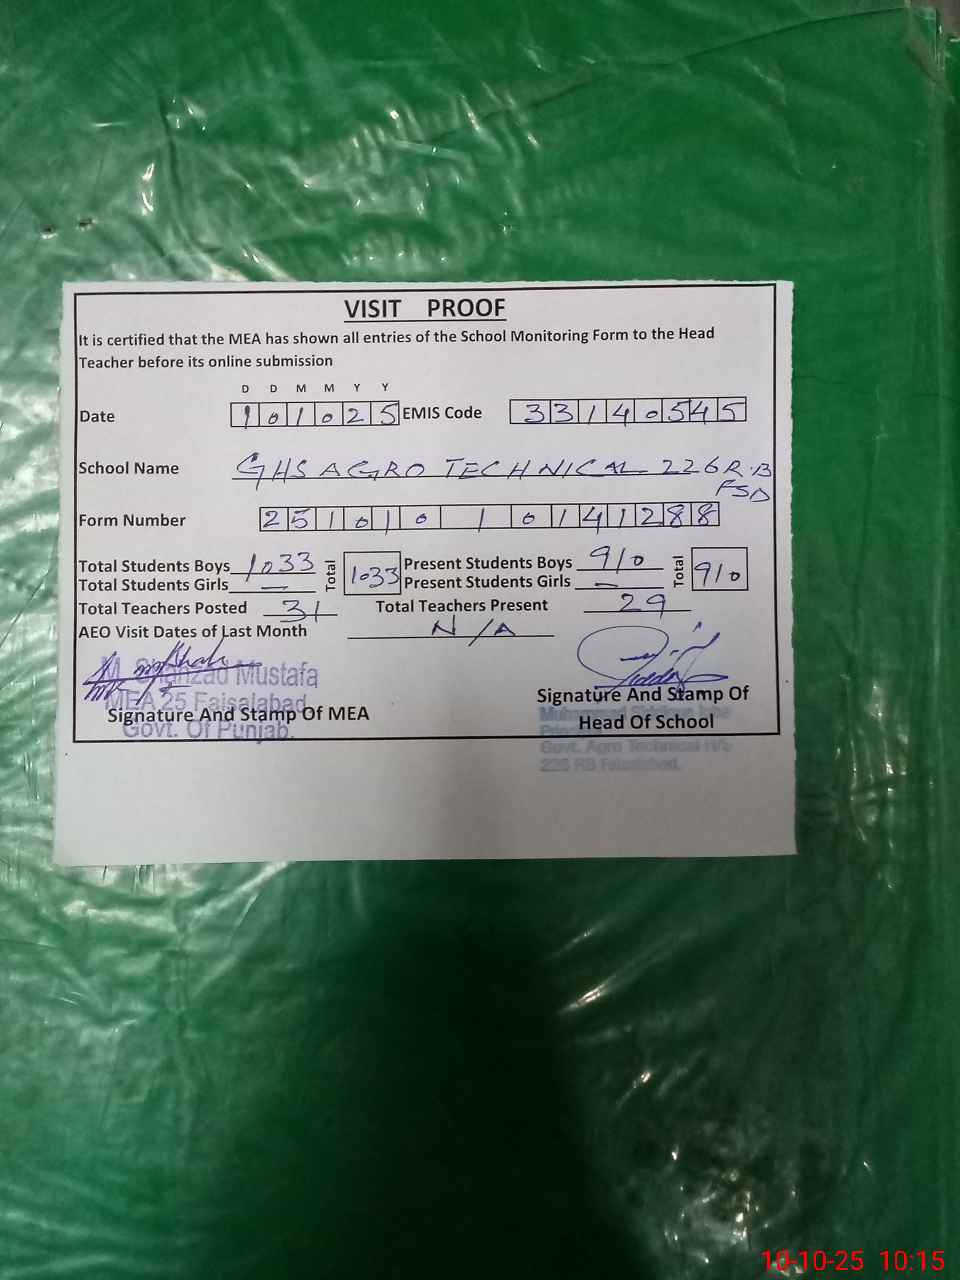 VISIT PROOF
It is certified that the MEA has shown all entries of the School Monitoring Form to the Head
Teacher before its online submission
D D M M Y Y
Date 101025 EMIS Code 33140545
School Name GHS AGRO TECHNICAL 226 R.B
FSD
Form Number 2510101 0141288
Total Students Boys 1033 Total 1033 Present Students Boys 910 Total 910
Total Students Girls — Present Students Girls —
Total Teachers Posted 31 Total Teachers Present 29
AEO Visit Dates of Last Month N/A
M. Shahzad Mustafa
MEA 25 Faisalabad
Govt. Of Punjab.
Signature And Stamp Of MEA
Signature And Stamp Of
Head Of School
Muhammad
Govt. Agro Technical H/S
226 RB Faisalabad.
10-10-25 10:15